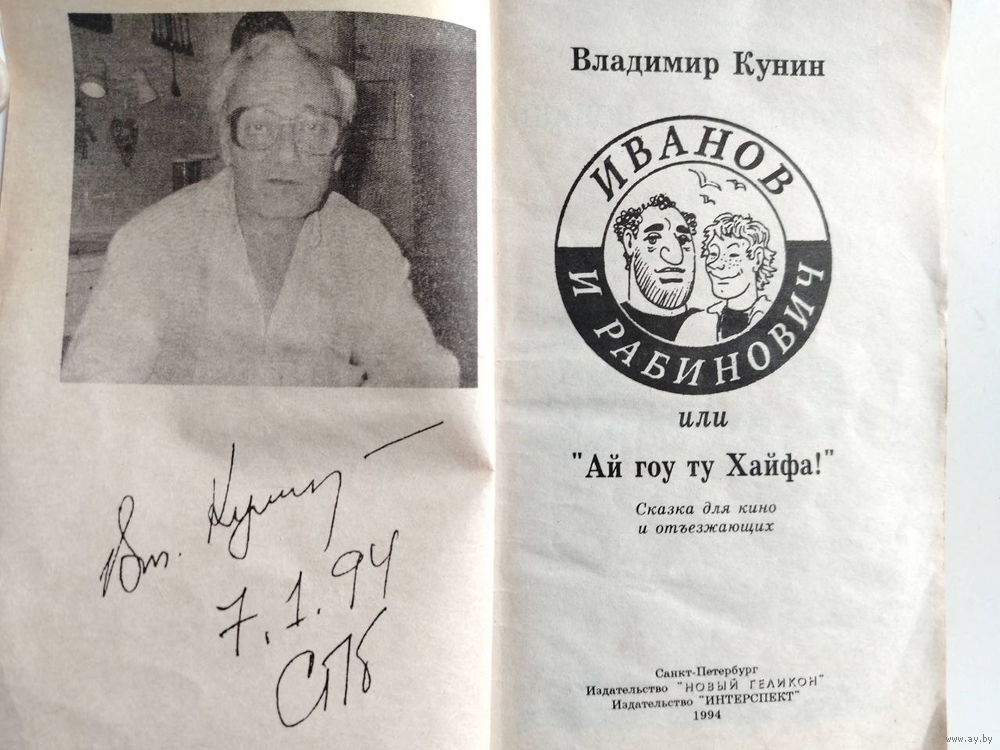 Вл. Кунин
7.1.94
СПб
Владимир Кунин
ИВАНОВ
И РАБИНОВИЧ
или
"Ай гоу ту Хайфа!"
Сказка для кино
и отъезжающих
Санкт-Петербург
Издательство "НОВЫЙ ГЕЛИКОН"
Издательство "ИНТЕРСПЕКТ"
1994
www.ay.by